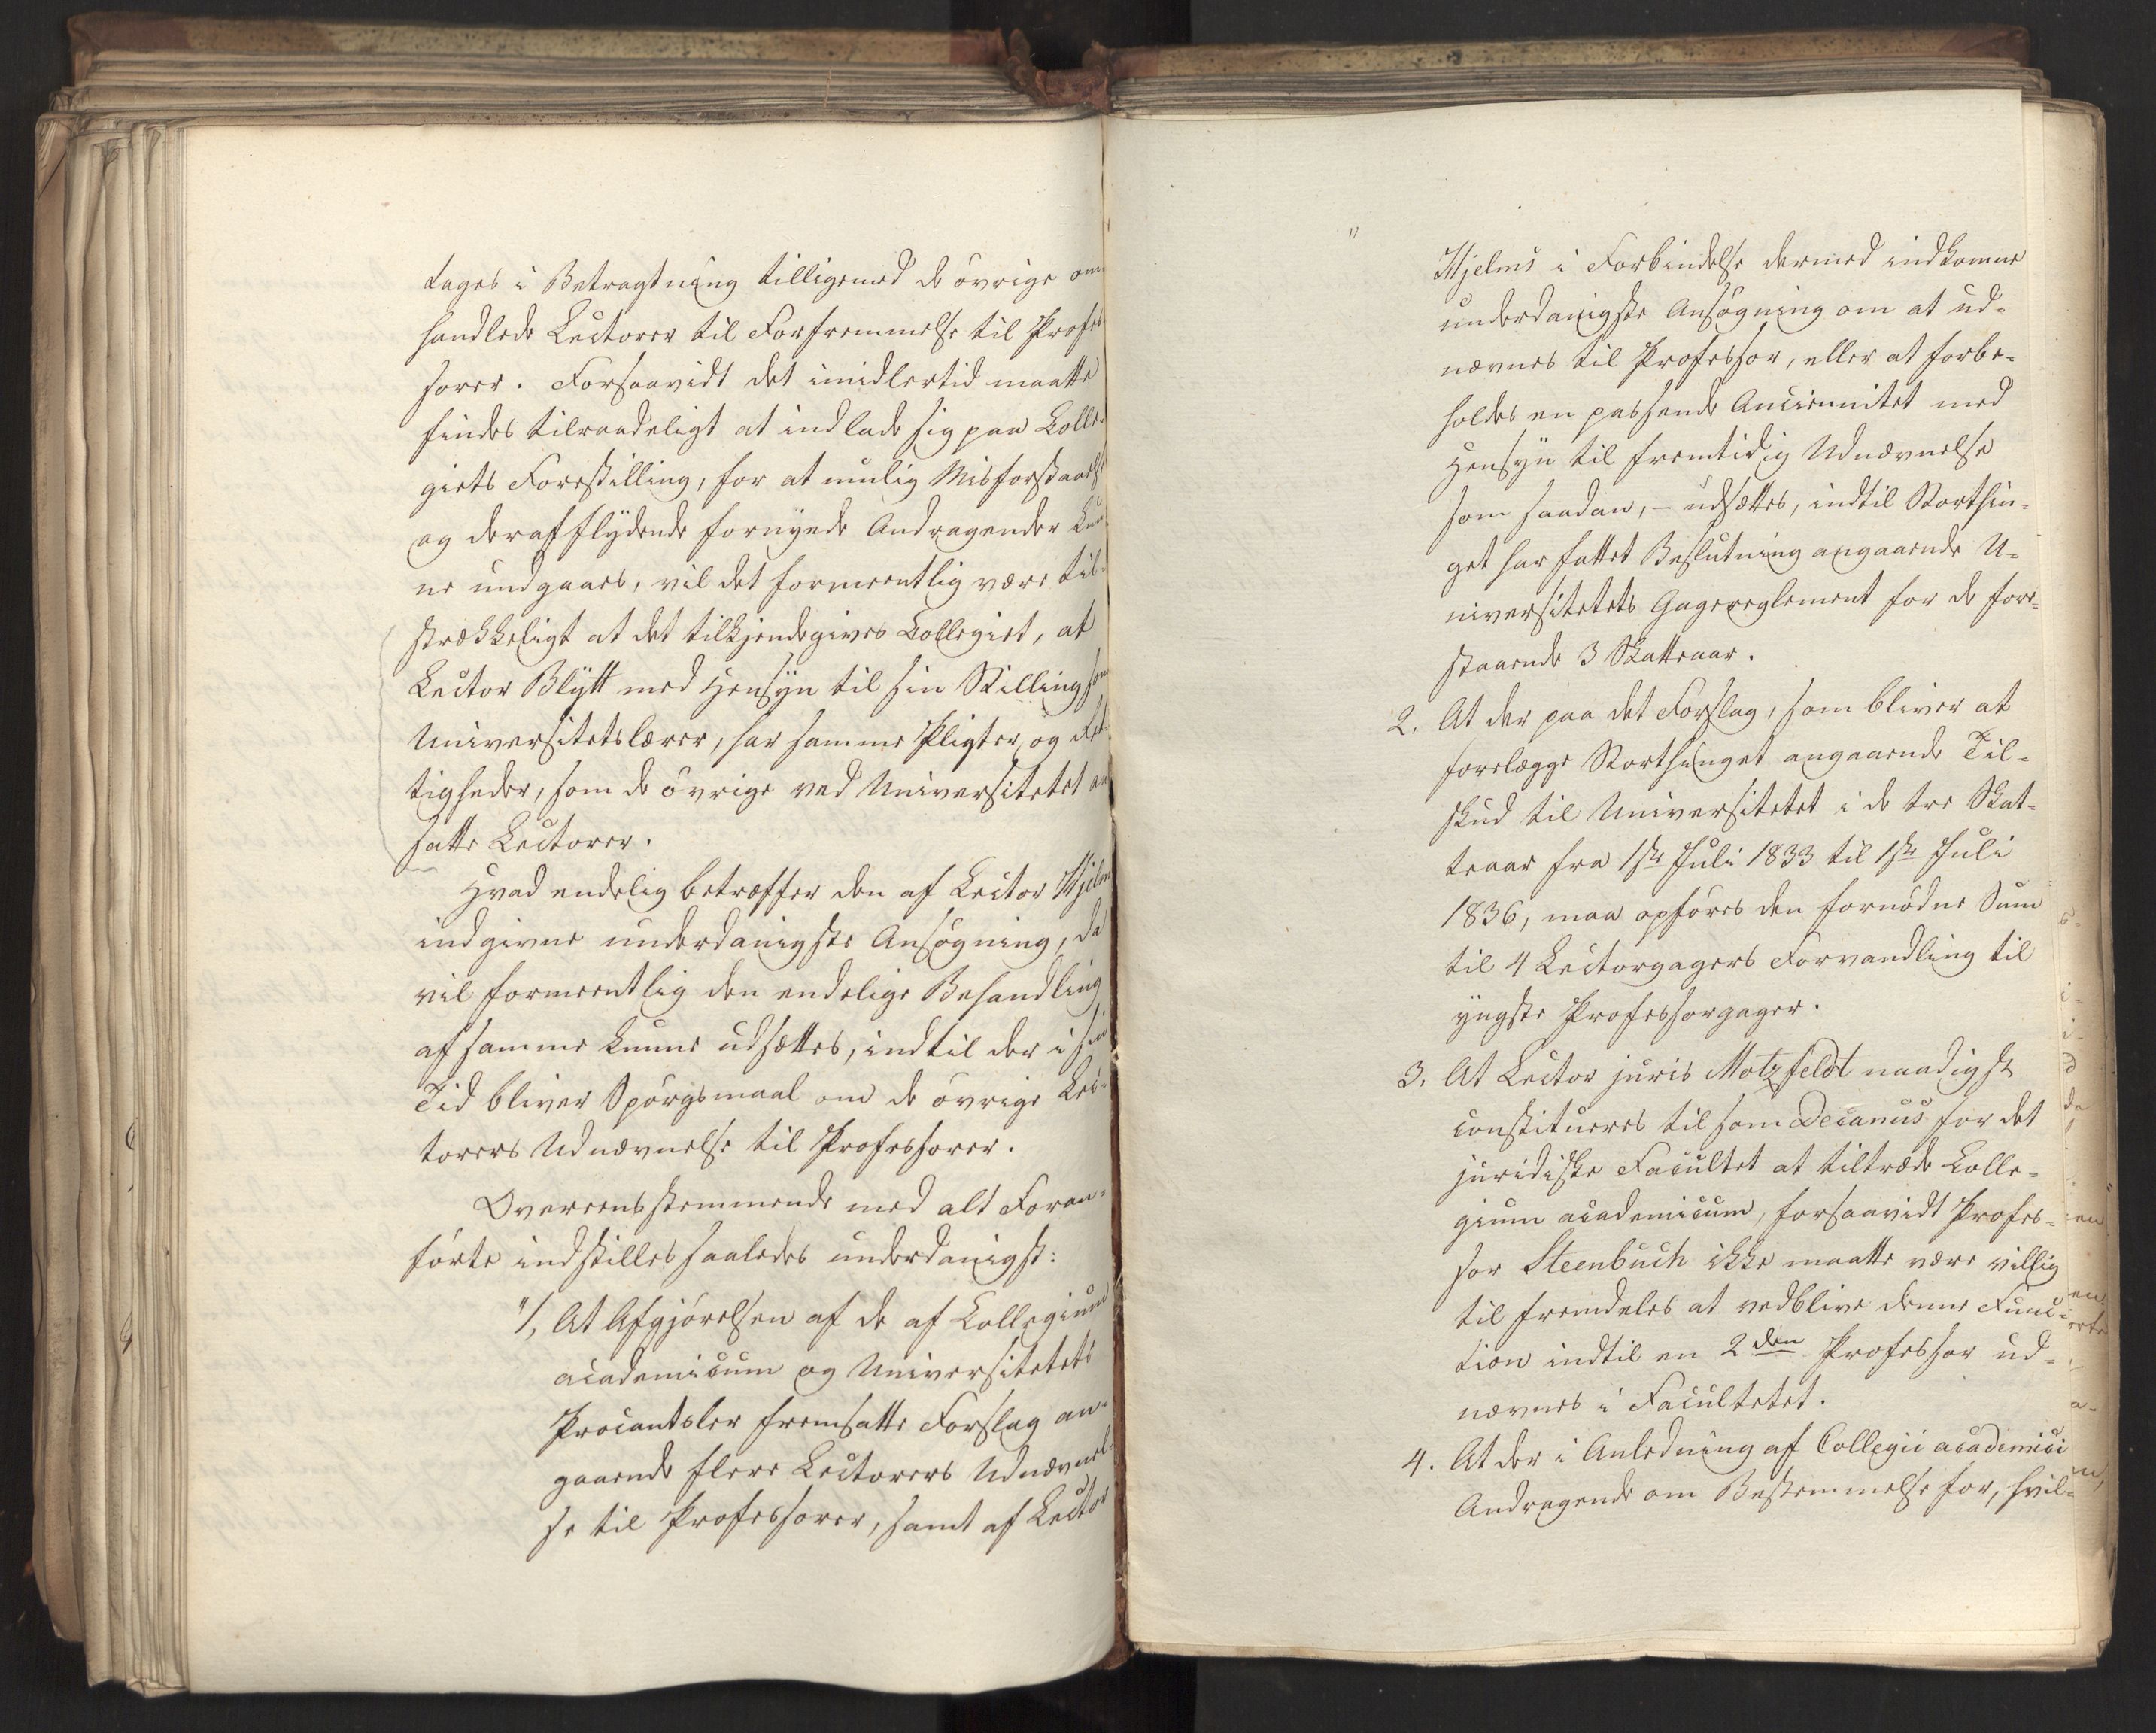 tages i Betragtning tilligemed de øvrige om
handlede Lectorer til Forfremmelse til Profes
sorer. Forsaavidt det imidlertid maatte
findes tilraadeligt at indlade sig paa Colle-
giets Forestilling, for at mulig Misforstaaelse
og deraf flydende fornyede Andragender kun
ne undgaaes, vil det formeentlig være til-
strækkeligt at det tilkjendegives Collegiet, at
Lector Blytt med Hensyn til sin Stilling som
Universitetslærer, har samme Pligter og Ret-
tigheder, som de øvrige ved Universitetet an
satte Lectorer.
Hvad endelig betræffer den af Lector Hjelm
indgivne underdanigste Ansøgning, da
vil formeentlig den endelige Behandling
af samme kunne udsættes, indtil der i sin
Tid bliver Spørgsmaal om de øvrige Lec-
torers Udnævnelse til Professorer.
Overeensstemmende med alt Foran-
førte indstilles saaledes underdanigst:
"1, At Afgjørelsen af de af Collegium
academicum og Universitetets
Procantsler fremsatte Forslag an-
gaaende flere Lectorers Udnævnel-
se til Professorer, samt af Lector
" Hjelms i Forbindelse dermed indkomne
underdanigste Ansøgning om at ud-
nævnes til Professor, eller at forbe-
holdes en passende Anciennitet med
Hensyn til fremtidig Udnævnelse
som saadan, - udsættes, indtil Storthin-
get har fattet Beslutning angaaende U-
niversitetets Gagereglement for de fore-
staaende 3 Skatteaar.
2. At der paa det Forslag, som bliver at
forelægge Storthinget angaaende Til-
skud til Universitetet i de tre Skat-
teaar fra 1ste Juli 1833 til 1ste Juli
1836, maa opføres den fornødne Sum
til 4 Lectorgagers Forvandling til
yngste Professorgager.
3. At Lector juris Motzfeldt naadigst
constitueres til som Decanus for det
juridiske Facultet at tiltræde Colle-
gium academicum, forsaavidt Profes-
sor Steenbuch ikke maatte være villig
til fremdeles at vedblive denne Func-
tion indtil en 2den Professor ud-
nævnes i Facultetet.
4. At der i Anledning af Collegii academici
Andragende om Bestemmelse for, hvil-